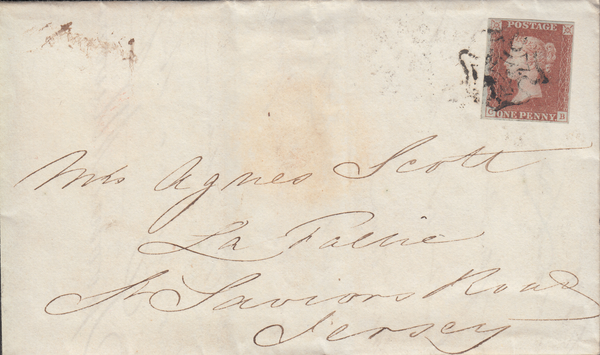 POSTAGE
ONE PENNY
Mrs Agnes Scott
La Fallie
St Saviors Road
Jersey